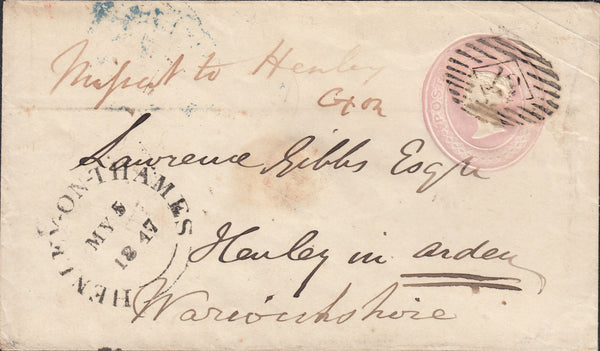 Missent to Henley
Oxon
Lawrence Gibbs Esqre
HENLEY-ON-THAMES
MY 5
1847
Henley in arden
Warwickshire
POS